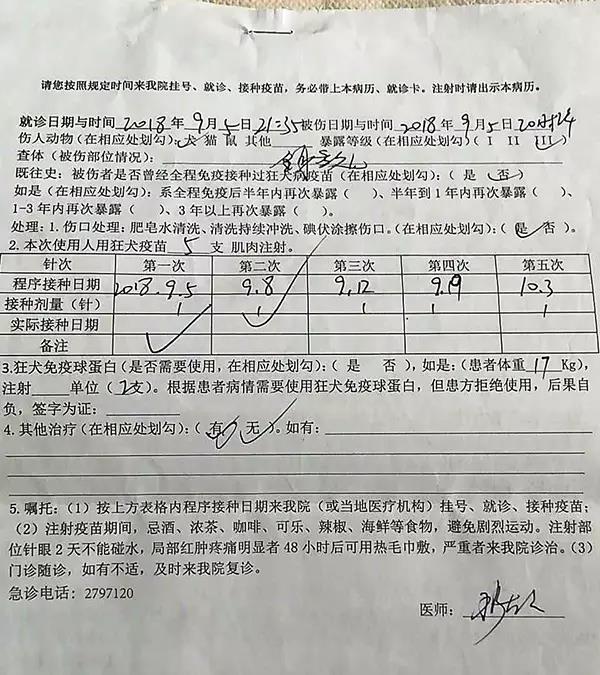 请您按照规定时间来我院挂号、就诊、接种疫苗，务必带上本病历、就诊卡。注射时请出示本病历。
就诊日期与时间 2018 年 9 月 5 日 21:35 被伤日期与时间 2018 年 9 月 5 日 20时24
伤人动物（在相应处划勾）：犬 猫 鼠 其他 暴露等级（在相应处划勾）（ I II III ）
查体（被伤部位情况）：
既往史：被伤者是否曾经全程免疫接种过狂犬病疫苗（在相应处划勾）：（ 是 否）
如是（在相应处划勾）：系全程免疫后半年内再次暴露（ ）、半年到 1 年内再次暴露（ ）、
1-3 年内再次暴露（ ）、3 年以上再次暴露。（ ）。
处理：1. 伤口处理：肥皂水清洗、清洗持续冲洗、碘伏涂擦伤口。（在相应处划勾）：（是 否 ）。
2. 本次使用人用狂犬疫苗 5 支 肌肉注射。
针次 第一次 第二次 第三次 第四次 第五次
程序接种日期 2018.9.5 9.8 9.12 9.19 10.3
接种剂量（针） 1 1 1 1 1
实际接种日期
备注
3.狂犬免疫球蛋白（是否需要使用，在相应处划勾）：（ 是 否 ），如是：（患者体重 17 Kg），
注射 单位（ 2支）。根据患者病情需要使用狂犬免疫球蛋白，但患方拒绝使用，后果自
负，签字为证：
4. 其他治疗（在相应处划勾）：（ 有 无 ）。如有：
5. 嘱托：（1）按上方表格内程序接种日期来我院（或当地医疗机构）挂号、就诊、接种疫苗；
（2）注射疫苗期间，忌酒、浓茶、咖啡、可乐、辣椒、海鲜等食物，避免剧烈运动。注射部
位针眼 2 天不能碰水，局部红肿疼痛明显者 48 小时后可用热毛巾敷，严重者来我院诊治。（3）
门诊随诊，如有不适，及时来我院复诊。
急诊电话：2797120
医师：